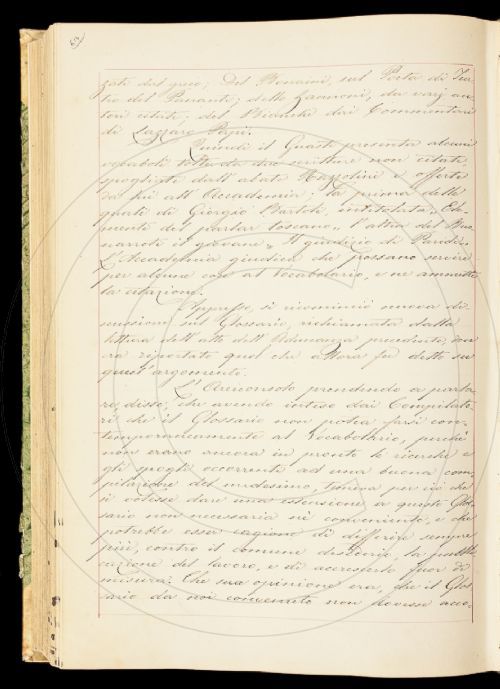 zati dal greco; Del Nannini, sul Poeta di Tea-
tro del Pananti; dello Zannoni, da varj au-
tori citati; del Bianchi dai Commentari
di Lazzaro Papi.
Quindi il Guasti presenta alcuni
vocaboli tratti da due scritture non citate,
spogliate dall'abate Razzolini e offerte
da lui all'Accademia: la prima delle
quali di Giorgio Bartoli, intitolata „ Ele-
menti del parlar toscano „ l'altra del Buo-
narroti il giovane „ Il giudizio di Paride „
L'Accademia giudica che possano servire
per alcune voci al Vocabolario, e ne ammette
la citazione.
Appresso, si ricominciò nuova di-
scussione sul Glossario, richiamata dalla
lettura dell'atto dell'Adunanza precedente, dov'
era riportato quel che allora fu detto su
quest'argomento.
L'Arciconsolo prendendo a parla-
re disse, che avendo inteso dai Compilato-
ri che il Glossario non potea farsi con-
temporaneamente al Vocabolario, perchè
non erano ancora in pronto le ricerche e
gli spogli occorrenti ad una buona com-
pilazione del medesimo, temeva per ciò che
si volesse dare una estensione a questo Glos-
sario non necessaria nè conveniente, e che
potrebbe esser cagione di differire sempre
più, contro il comune desiderio, la pubbli-
cazione del lavoro, e di accrescerlo fuor di
misura: Che sua opinione era, che il Glos-
sario da noi convenuto non dovesse acco-